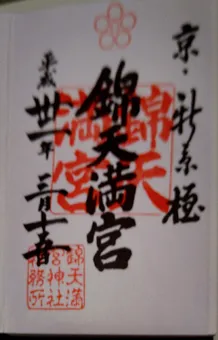 京・新京極
錦天満宮
平成卅一年三月十一日
錦天
満宮
錦天満
宮神社
社務所